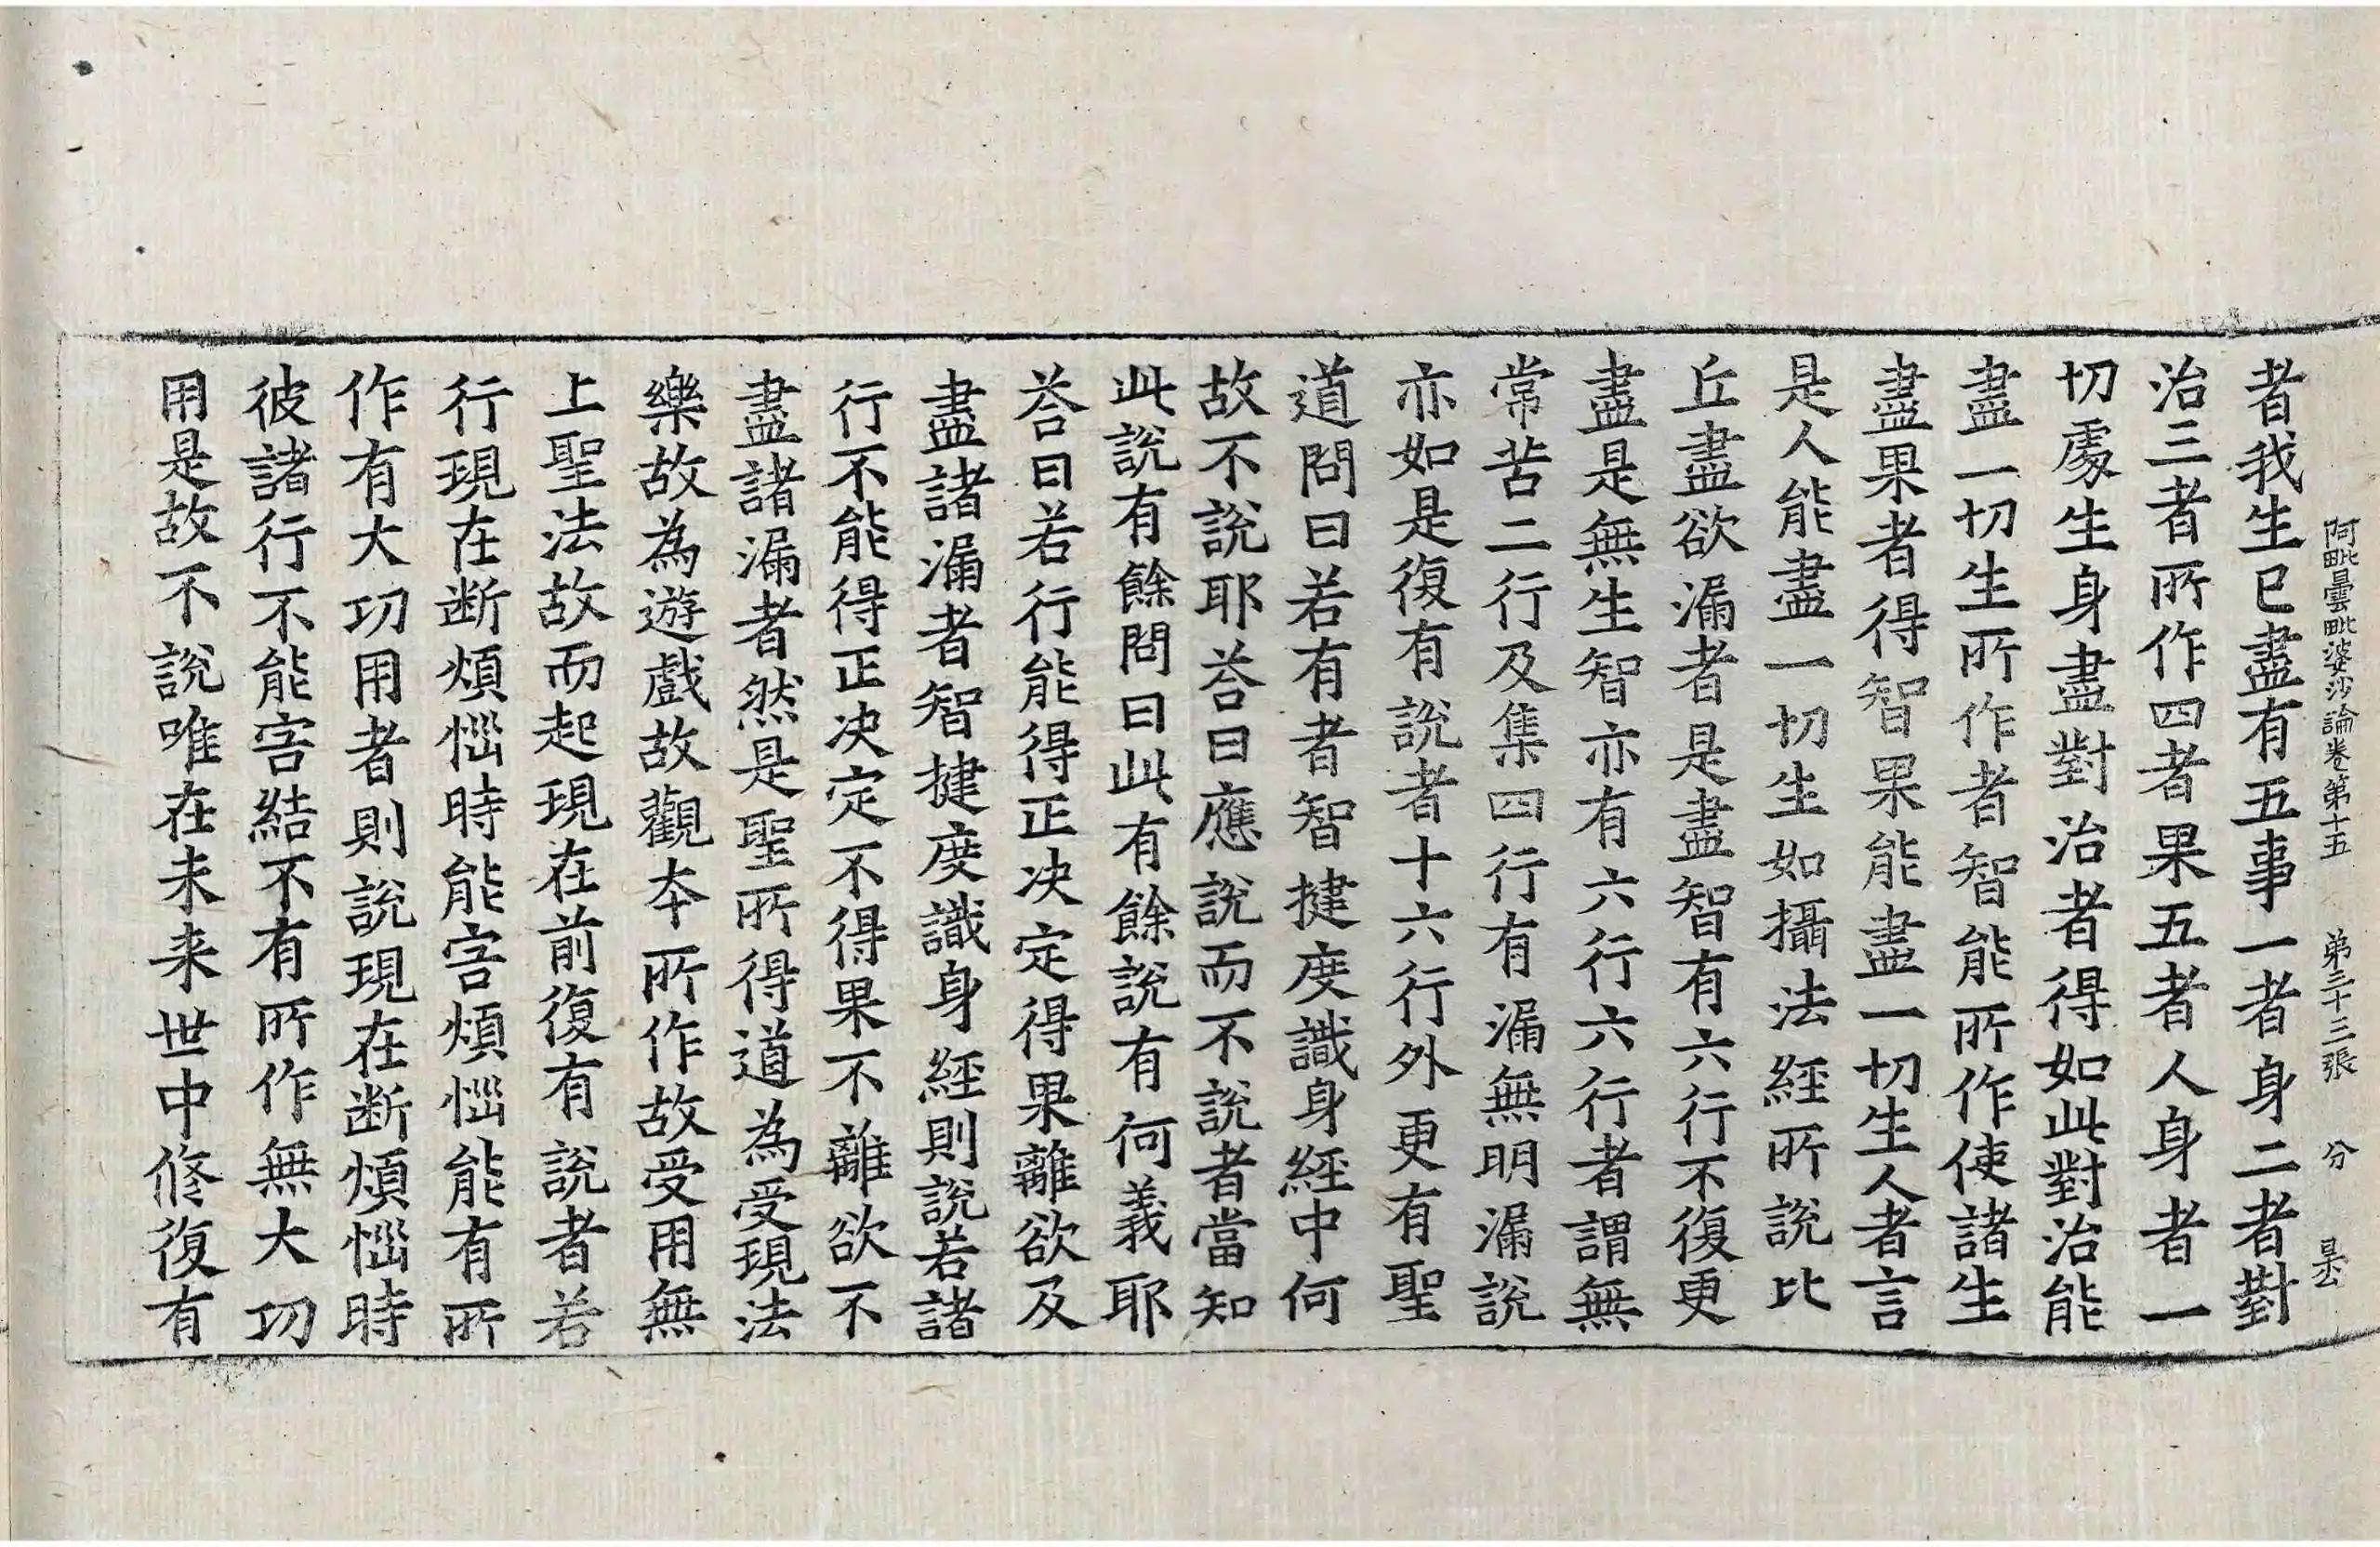 阿毗曇毗婆沙論卷第十五 第三十三張 分 是公
者我生已盡有五事一者身二者對
治三者所作四者果五者人身者一
切處生身盡對治者得如此對治能
盡一切生所作者智能所作使諸生
盡果者得智果能盡一切生人者言
是人能盡一切生如攝法經所說比
丘盡欲漏者是盡智有六行不復更
盡是無生智亦有六行六行者謂無
常苦二行及集四行有漏無明漏說
亦如是復有說者十六行外更有聖
道問曰若有者智揵度識身經中何
故不說耶荅曰應說而不說者當知
此說有餘問曰此有餘說有何義耶
荅曰若行能得正决定得果離欲及
盡諸漏者智揵度識身經則說若諸
行不能得正决定不得果不離欲不
盡諸漏者然是聖所得道為受現法
樂故為遊戲故觀本所作故受用無
上聖法故而起現在前復有說者若
行現在断煩惱時能害煩惱能有所
作有大功用者則說現在断煩惱時
彼諸行不能害結不有所作無大功
用是故不說唯在未来世中修復有